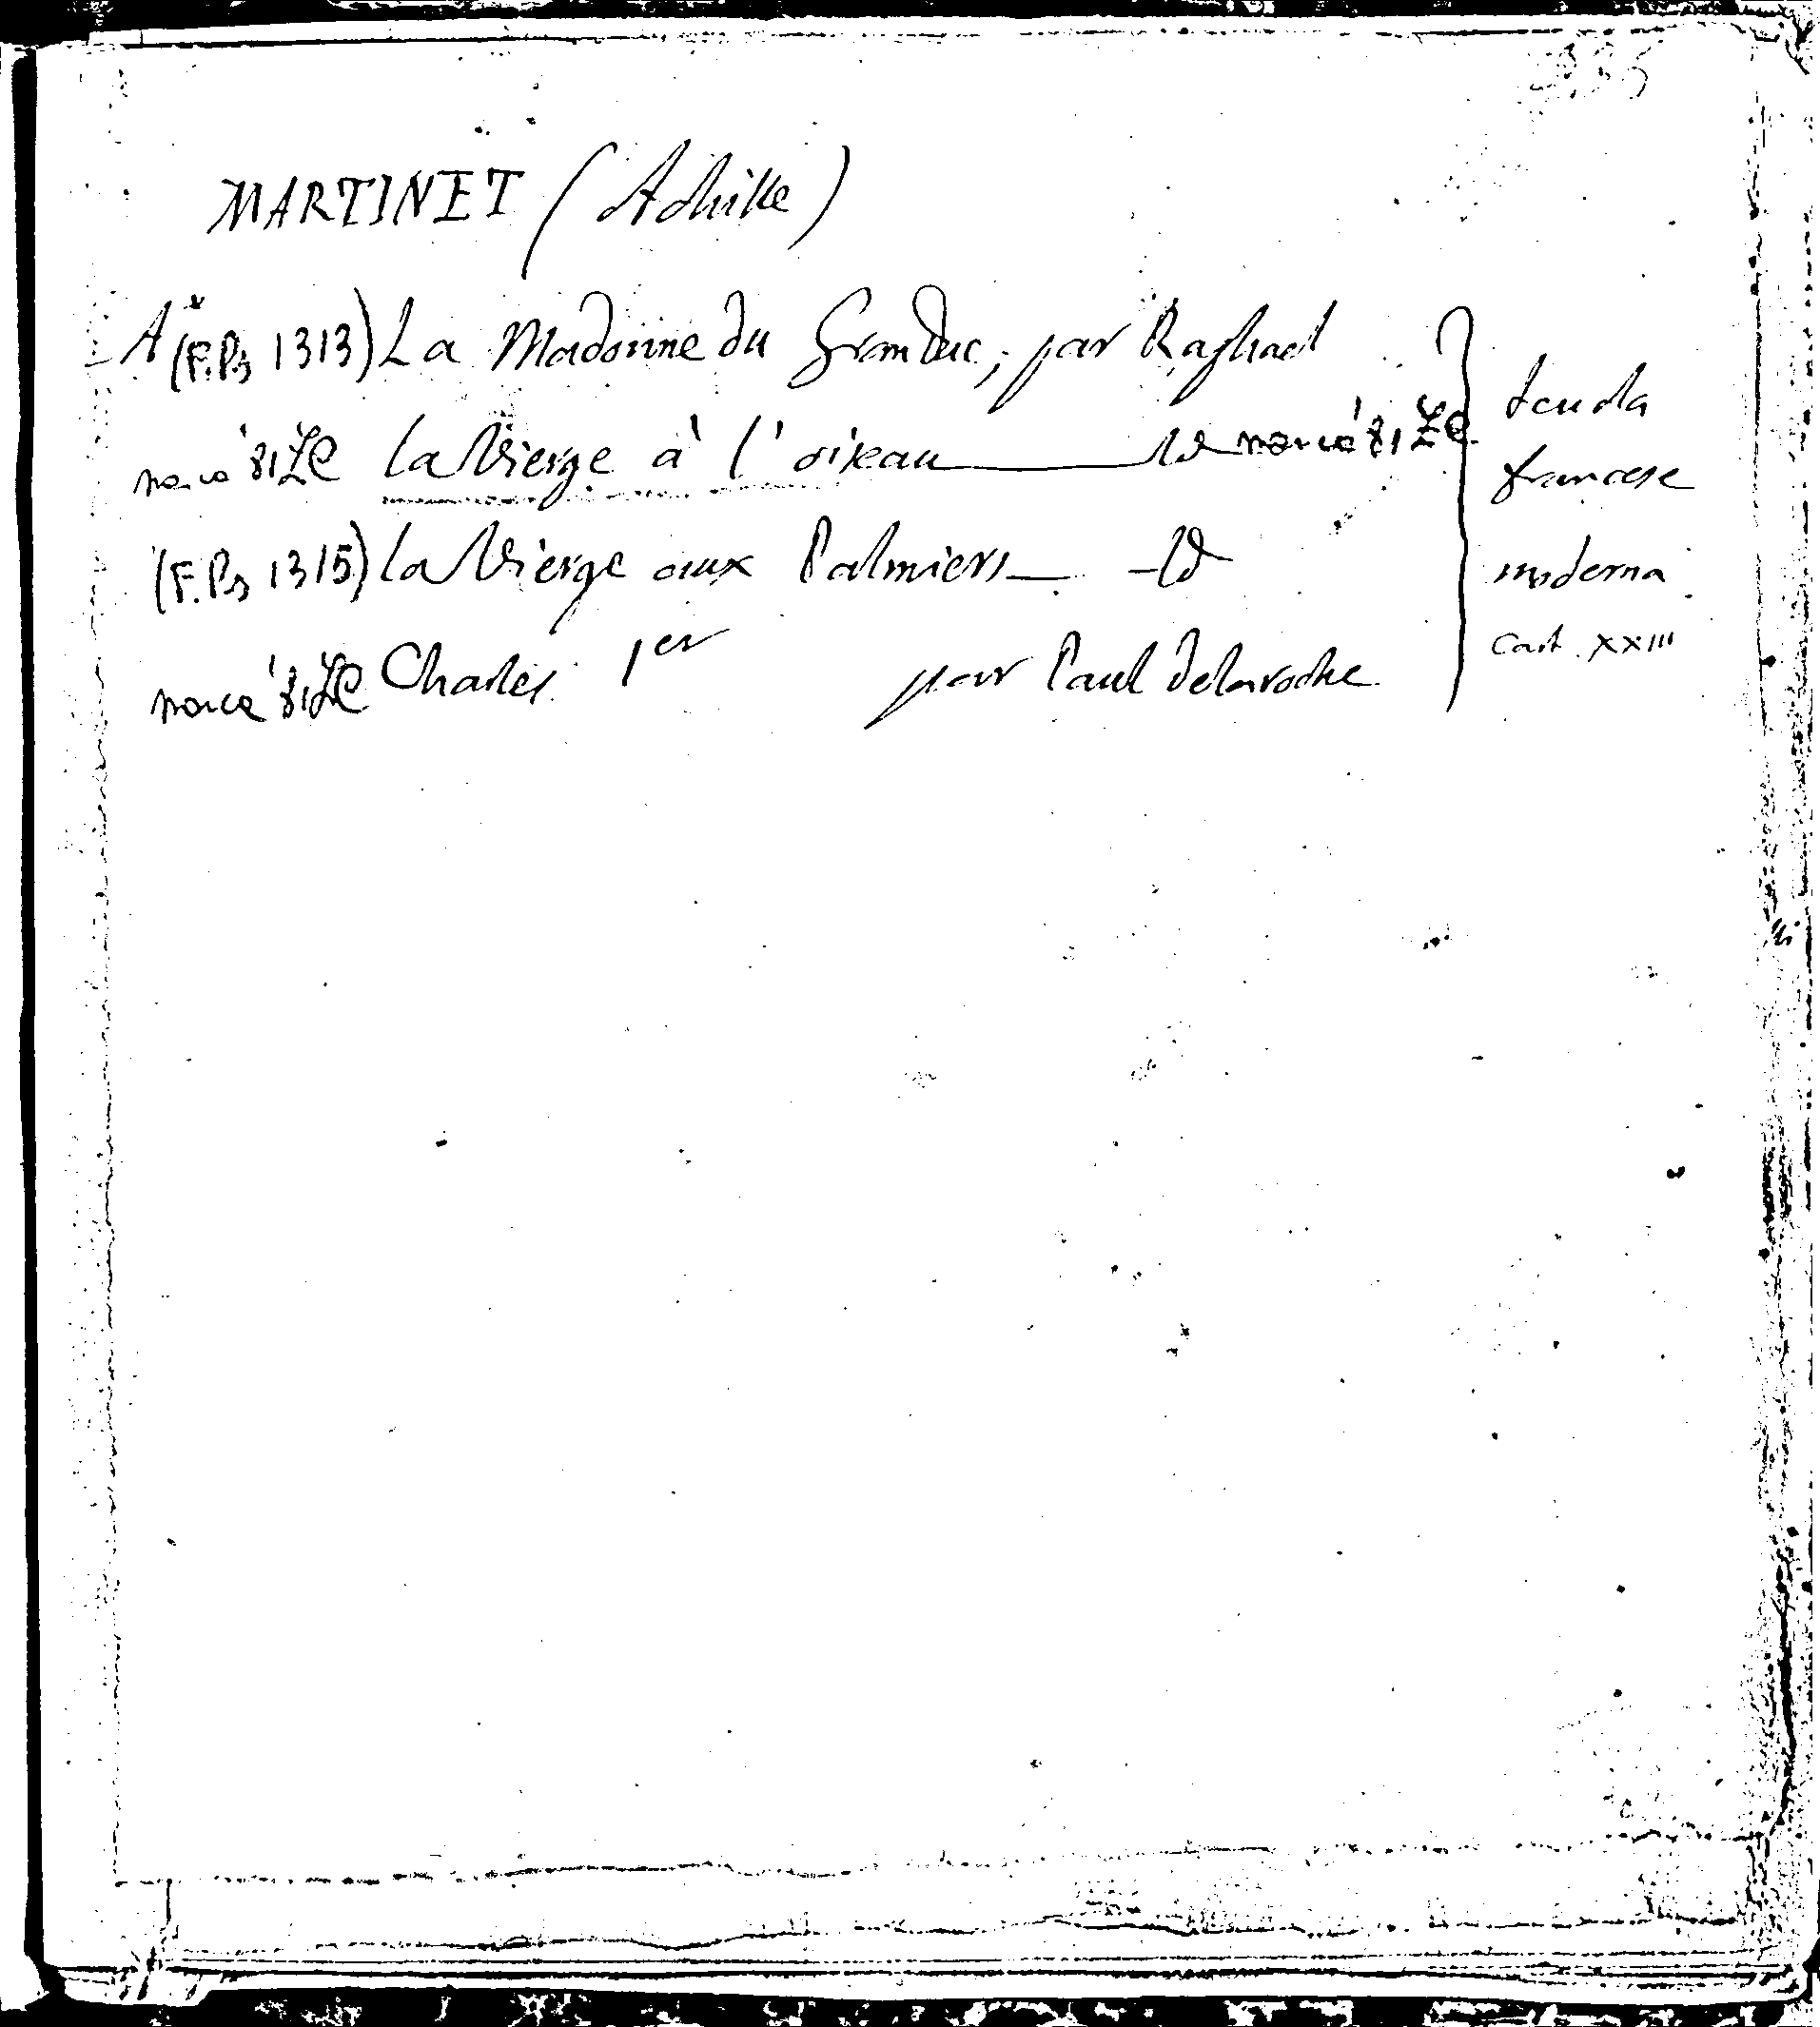 MARTINET (Achille)
A* (F.Ps 1313) La Madonne du Grand Duc, par Raphael
La Vierge à l'oiseau — Id
(F.Ps 1315) La Vierge aux Palmiers — Id
Charles 1er par Paul Delaroche
scuola
francese
moderna
Cart. XXIII